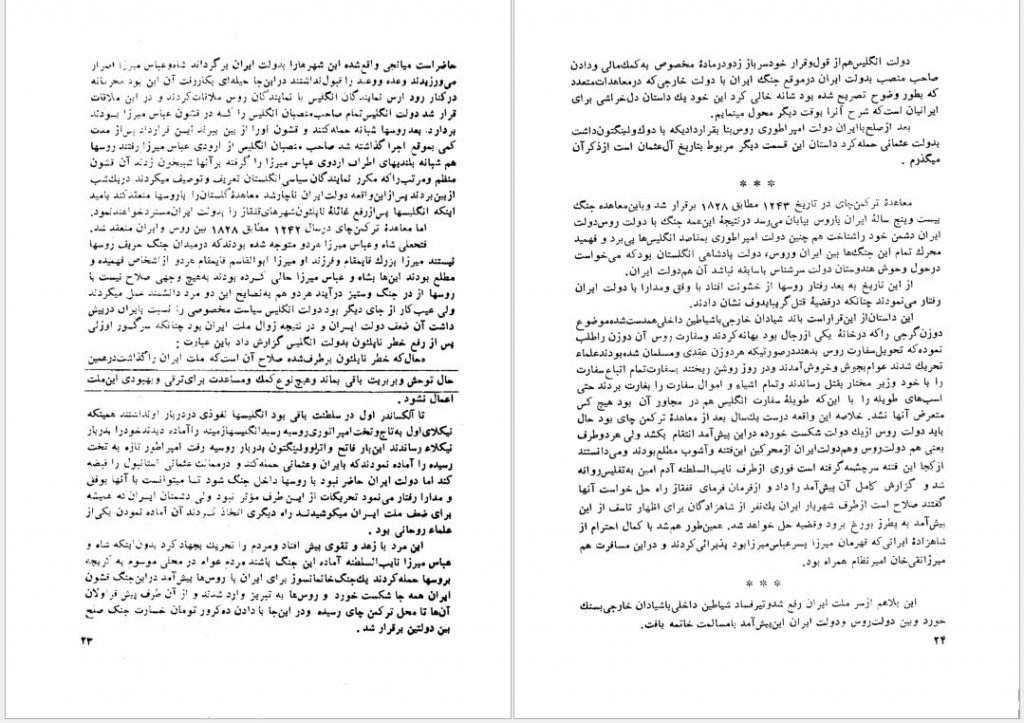 حاضر است میانجی واقع شده این شهرها را بدولت ایران برگرداند شاه و عباس میرزا اصرار
می‌ورزیدند وعده و وعید را قبول نداشتند در این‌جا حیله‌ای بکار رفت آن این بود محرمانه
در کنار رود ارس نمایندگان انگلیس با نمایندگان روس ملاقات کردند و در این ملاقات
قرار شد دولت انگلیس تمام صاحب‌منصبان انگلیس را که در قشون عباس میرزا بودند
بردارد. بعد روسها شبانه حمله کنند و قشون اورا از بین ببرند ایـن قرارداد پس از مدت
کمی بموقع اجرا گذاشته شد صاحب منصبان انگلیس از اردوی عباس میرزا رفتند روسها
هم شبانه بلندیهای اطراف اردوی عباس میرزا را گرفته بر آنها شبیخون زدند آن قشون
منظم و مرتب را که مکرر نمایندگان سیاسی انگلستان تعریف و توصیف میکردند در یک شب
از بین بردند پس از این واقعه دولت ایران ناچار شد معاهدهٔ گلستان را با روسها منعقد کند بامید
اینکه انگلیسها پس از رفع غائلهٔ ناپلئون شهرهای قفقاز را بدولت ایران مسترد خواهند نمود.
اما معاهدهٔ ترکمن‌چای در سال ۱۲۴۲ مطابق ۱۸۲۸ بین روس و ایران منعقد شد.
فتحعلی شاه و عباس میرزا هردو متوجه شده بودند که در میدان جنگ حریف روسها
نیستند میرزا بزرگ قایم‌مقام و فرزند او میرزا ابوالقاسم قایم‌مقام هردو از اشخاص فهمیده و
مطلع بودند اینها بشاه و عباس میرزا حالی کـرده بودند به‌هیچ وجهی صلاح نیست با
روسها از در جنگ و ستیز درآیند هردو هم به نصایح این دو مرد دانشمند عمل میکردند
ولی عیب کار از جای دیگر بود دولت انگلیس سیاست مخصوصی را نسبت بایران در پیش
داشت آن ضعف دولت ایـران و در نتیجه زوال ملت ایران بود چنانکه سر گسور اوزلی
پس از رفع خطر ناپلئون بدولت انگلیس گزارش داد باین عبارت :
«حال که خطر ناپلئون برطرف شده صلاح آن است که ملت ایران را گذاشت در همین
حال توحش و بربریت باقی بماند و هیچ نوع کمک و مساعدت برای ترقی و بهبودی این ملت
اعمال نشود .
تا آلکساندر اول در سلطنت باقی بود انگلیسها نفوذی در دربار او نداشتند همینکه
نیکلای اول به تاج و تخت امپراتوری روسیه رسید انگلیسها زمینه را آماده دیدند خود را بدربار
نیکلاء رساندند این بار فاتح واترلو ولینگتون بدربار روسیه رفت امپراطور تازه به تخت
رسیده را آماده نمودند که بایران و عثمانی حمله کند و در ممالک عثمانی استانبول را قبضه
کند اما دولت ایران حاضر نبود با روسها داخل جنگ شود تا میتوانست با آنها بوفق
و مدارا رفتار می‌نمود تحریکات از ایـن طرف مؤثر نبود ولی دشمنان ایـران که همیشه
برای ضعف ملت ایـران میکوشیدنـد راه دیگری اتخاذ کـردند آن آماده نمودن یکی از
علماء روحانی بود .
این مرد با زهد و تقوی پیش افتاد و مردم را تحریک بجهاد کرد بدون اینکه شاه و
عباس میرزا نایب‌السلطنه آماده این جنگ باشند مردم عوام در محلی موسوم به گریجه
بروسها حمله کردند یک جنگ خانمانسوز برای ایران با روس‌ها پیش‌آمد در این جنگ قشون
ایران همه جا شکست خورد و روس‌ها به تبریز وارد شدند و از آن طرف پیش قراولان
آن‌ها تا محل ترکمن چای رسیده و در این‌جا با دادن ده کرور تومان خسارت جنگ صلح
بین دولتین برقرار شد .
۲۳
دولت انگلیس هم از قول و قرار خود سر باز زد و در مادهٔ مخصوص به کمک مالی و دادن
صاحب منصب بدولت ایران در موقع جنگ ایران با دولت خارجی که در معاهدات متعدد
که بطور وضوح تصریح شده بود شانه خالی کرد این خود یک داستان دل‌خراشی برای
ایرانیان است که شرح آنرا بوقت دیگر محول مینمایم.
بعد از صلح با ایران دولت امپراطوری روس بنا بقراردادیکه با دوک ولینگتون داشت
بدولت عثمانی حمله کرد داستان این قسمت دیگر مربوط بتاریخ آل عثمان است از ذکر آن
میگذرم .
* * *
معاهدهٔ ترکمن‌چای در تاریخ ۱۲۴۳ مطابق ۱۸۲۸ برقرار شد و با این معاهده جنگ
بیست و پنج سالهٔ ایران با روس بپایان می‌رسد در نتیجهٔ این همه جنگ با دولت روس دولت
ایران دشمن خود را شناخت هم چنین دولت امپراطوری بمقاصد انگلیس‌ها پی برد و فهمید
محرک تمام این جنگ‌ها بین ایران و روس، دولت پادشاهی انگلستان بود که می‌خواست
در حول و حوش هندوستان دولت سرشناس باسابقه نباشد آن هم دولت ایران.
از این تاریخ به بعد رفتار روسها از خشونت افتاد با وفق و مدارا با دولت ایران
رفتار می‌نمودند چنانکه در قضیهٔ قتل گریبایدوف نشان دادند.
این داستان از این قرار است باند شیادان خارجی با شیاطین داخلی همدست شده موضوع
دو زن گرجی را که در خانهٔ یکی از رجال بود بهانه کردند و سفارت روس آن دو زن را طلب
نموده که تحویل سفارت روس بدهند در صورتیکه هر دو زن عقدی و مسلمان شده بودند علماء
تحریک شدند عوام بجوش و خروش آمدند و در روز روشن ریختند بسفارت تمام اتباع سفارت
را با خود وزیر مختار بقتل رساندند و تمام اشیاء و اموال سفارت را بغارت بردند حتی
اسب‌های طویله را با این‌که طویلهٔ سفارت انگلیس هم در مجاور آن بود هیچ کس
متعرض آنها نشد. خلاصه این واقعه درست یک‌سال بعد از معاهدهٔ ترکمن چای بود حال
باید دولت روس از یک دولت شکست خورده در این پیش‌آمد انتقام بکشد ولی هر دو طرف
یعنی هم دولت روس و هم دولت ایران از محرکین این فتنه و آشوب مطلع بودند و می‌دانستند
از کجا این فتنه سرچشمه گرفته است فوری از طرف نایب السلطنه آدم امین به تفلیس روانه
شد و گزارش کامل آن پیش‌آمد را داد و از فرمان فرمای قفقاز راه حل خواست آنها
گفتند صلاح است از طرف شهریار ایران یک نفر از شاهزادگان برای اظهار تاسف از این
پیش‌آمد به پطرز بورغ برود و قضیه حل خواهد شد. همین‌طور هم شد با کمال احترام از
شاهزادهٔ ایرانی که قهرمان میرزا پسر عباس میرزا بود پذیرائی کردند و در این مسافرت هم
میرزا تقی‌خان امیر نظام همراه بود.
* * *
این بلا هم از سر ملت ایران رفع شد و تیر فساد شیاطین داخلی با شیادان خارجی بسنگ
خورد و بین دولت روس و دولت ایران این پیش‌آمد با مسالمت خاتمه یافت.
۲۴